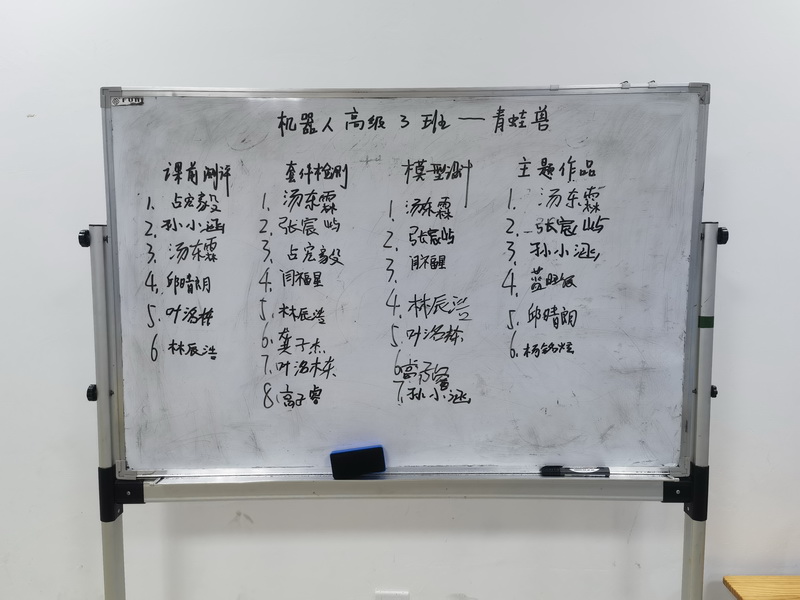 机器人高级3班—青蛙兽
课前测评
1. 占宏毅
2. 孙小涵
3. 汤东霖
4. 邱晴朗
5. 叶洺栋
6 林辰浩
套件检测
1. 汤东霖
2. 张宸屿
3. 占宏毅
4. 闫福星
5. 林辰浩
6. 龚子杰
7. 叶洺栋
8. 高子睿
模型设计
1. 汤东霖
2. 张宸屿
3. 闫福星
4. 林辰浩
5. 叶洺栋
6 高子睿
7. 孙小涵
主题作品
1. 汤东霖
2. 张宸屿
3. 孙小涵
4. 蓝
5. 邱晴朗
6. 杨铭炫